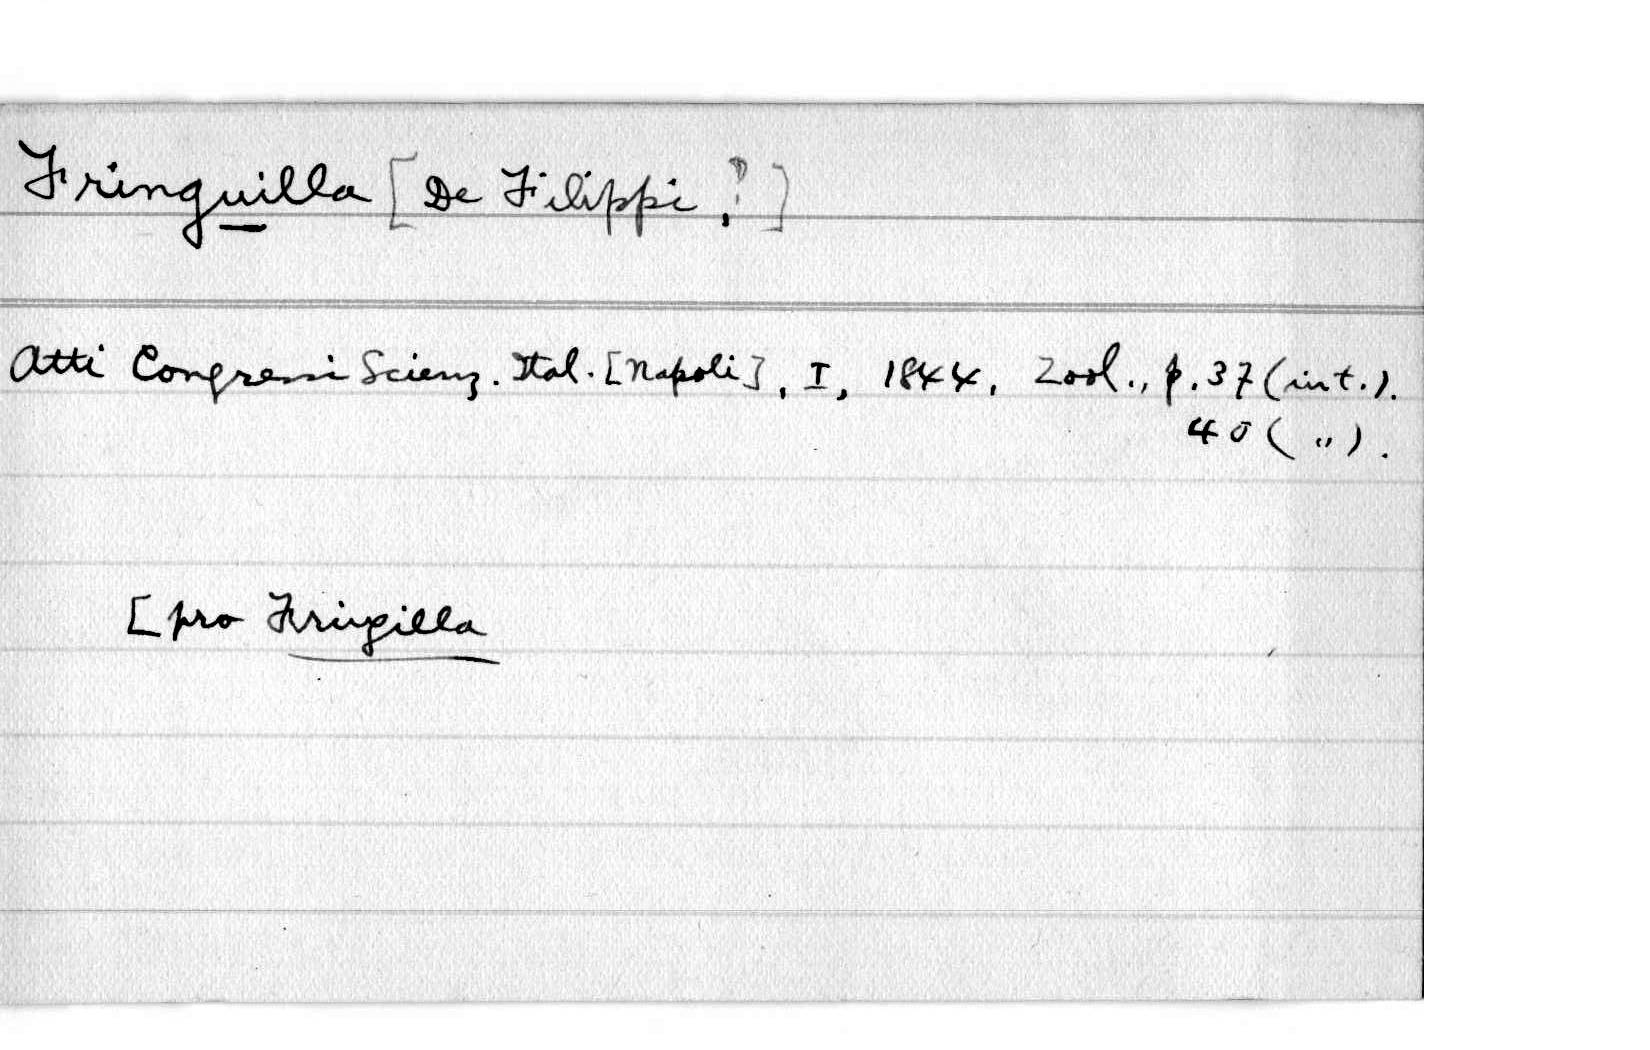 Fringuilla [De Filippi, ?]
Atti Congressi Scienz. Ital. [Napoli], I, 1844, Zool., p. 37 (int.).
40 ( " ).
[pro Fringilla